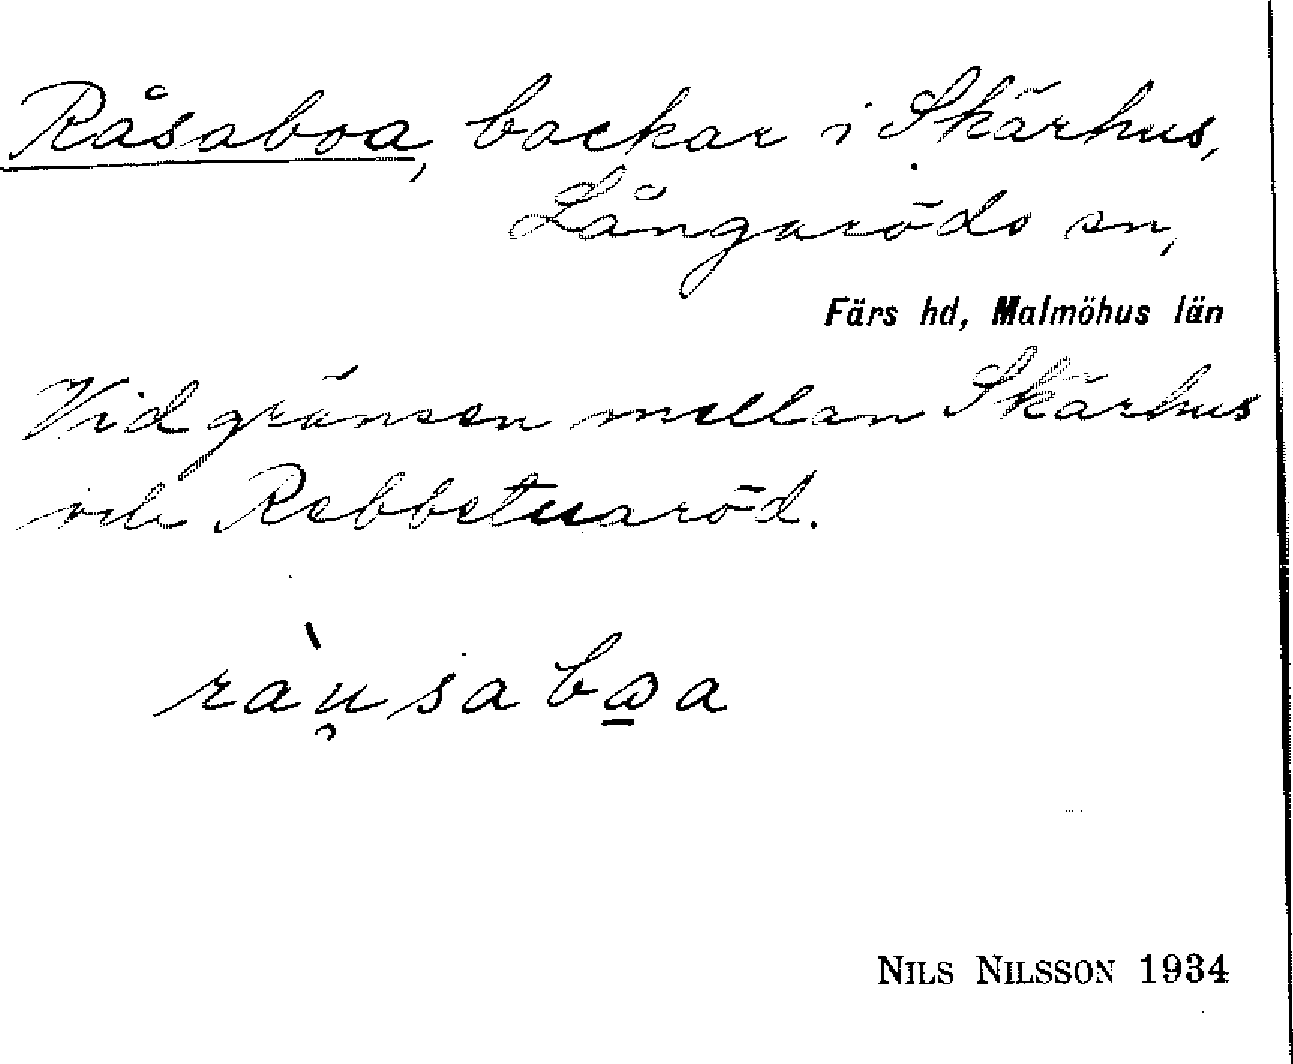 Råsaboa, backar i Skärhus,
Långaröds sn,
Färs hd, Malmöhus län
Vid gränsen mellan Skärhus
och Rebbetuaröd.
NILS NILSSON 1934